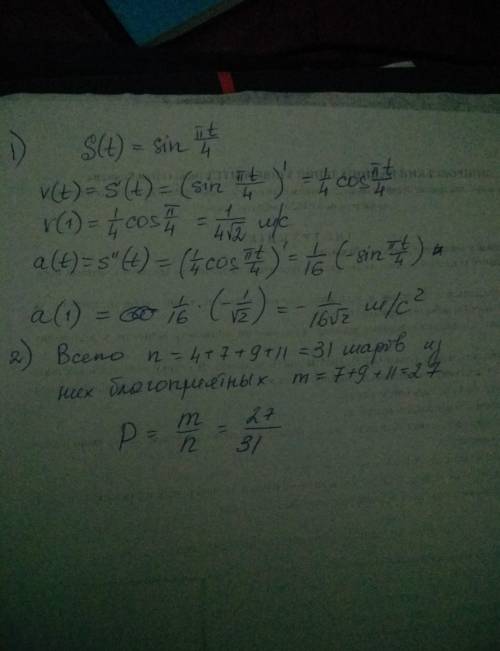 1) S(t) = sin πt/4
v(t) = s'(t) = (sin πt/4)' = 1/4 cos πt/4
v(1) = 1/4 cos π/4 = 1/(4√2) м/с
a(t) = s''(t) = (1/4 cos πt/4)' = 1/16 (-sin πt/4) и
a(1) = 1/16 · (-1/√2) = - 1/(16√2) м/с²
2) Всего n = 4+7+9+11 = 31 шаров из
них благоприятных m = 7+9+11=27
P = m/n = 27/31